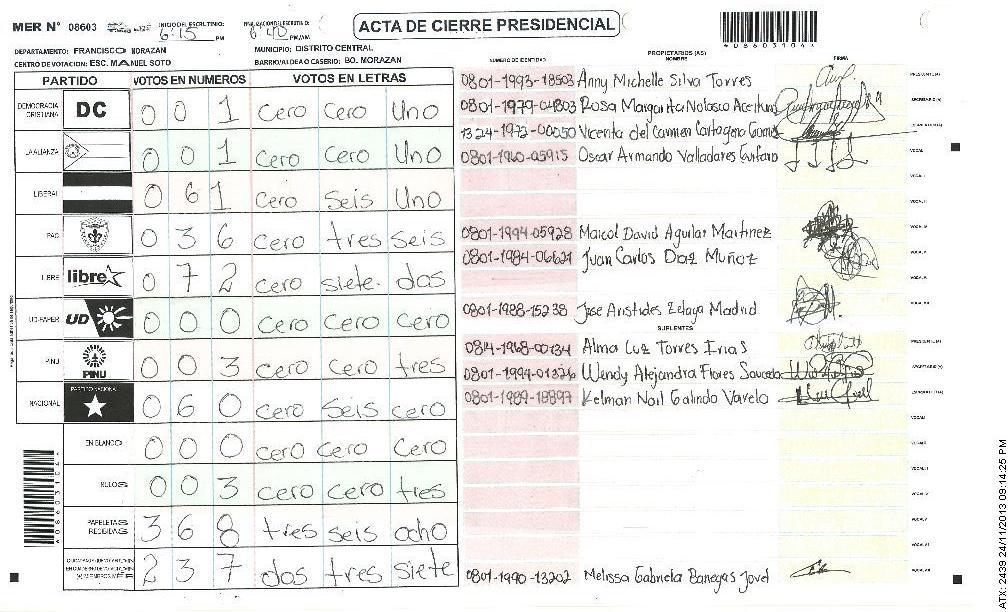 MER N° 08603
INICIO DEL ESCRUTINIO: 6:15 PM
6:40 PM/AM
ACTA DE CIERRE PRESIDENCIAL
*08603104*
DEPARTAMENTO: FRANCISCO MORAZAN
MUNICIPIO: DISTRITO CENTRAL
CENTRO DE VOTACION: ESC. MANUEL SOTO
BARRIO/ALDEA O CASERIO: BO. MORAZAN
PARTIDO VOTOS EN NUMEROS VOTOS EN LETRAS
DEMOCRACIA CRISTIANA DC 0 0 1 Cero Cero Uno
LA ALIANZA 0 0 1 Cero Cero Uno
LIBERAL 0 6 1 Cero Seis Uno
PAC 0 3 6 Cero tres seis
LIBRE libre 0 7 2 Cero siete. dos
UD-FAPER UD 0 0 0 Cero Cero Cero
PINU PINU 0 0 3 Cero Cero tres
NACIONAL PARTIDO NACIONAL 0 6 0 Cero Seis cero
EN BLANCO 0 0 0 Cero Cero Cero
NULOS 0 0 3 Cero cero tres
PAPELETAS RECIBIDAS 3 6 8 tres seis ocho
2 3 7 dos tres siete
PROPIETARIOS (AS)
NUMERO DE IDENTIDAD NOMBRE FIRMA
0801-1993-18503 Anny Michelle Silva Torres PRESIDENTE(A)
0801-1979-04803 Rosa Margarita Nolasco Aceituno SECRETARIO (A)
1324-1972-00050 Vicenta del Carmen Cartagena Gomez
0801-1960-05915 Oscar Armando Valladares VOCAL
VOCAL I
VOCAL II
0801-1994-05928 Maicol David Aguilar Martinez VOCAL IV
0801-1984-06621 Juan Carlos Diaz Muñoz
0801-1988-15238 Jose Aristides Zelaya Madrid
SUPLENTES
0814-1968-00134 Alma Luz Torres Irias PRESIDENTE(A)
0801-1994-01326 Wendy Alejandra Flores Sauceda SECRETARIO (A)
0801-1989-18897 Kelman Noil Galindo Varelo
0801-1990-13202 Melissa Gabriela Banegas Jovel
*08603104*
ATX: 2439 24/11/2013 09:14:25 PM